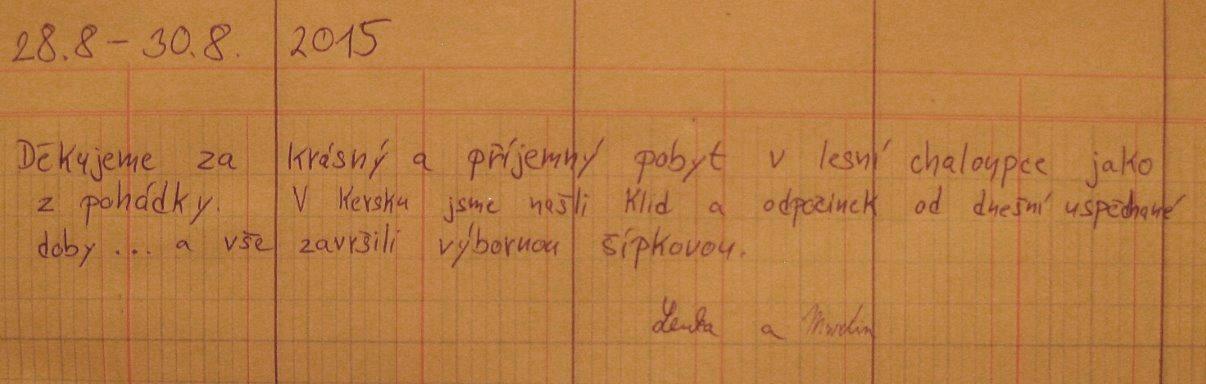 28.8 - 30.8. 2015
Děkujeme za krásný a příjemný pobyt v lesní chaloupce jako
z pohádky. V Kersku jsme našli klid a odpočinek od dnešní uspěchané
doby ... a vše završili výbornou šípkovou.
Lenka a